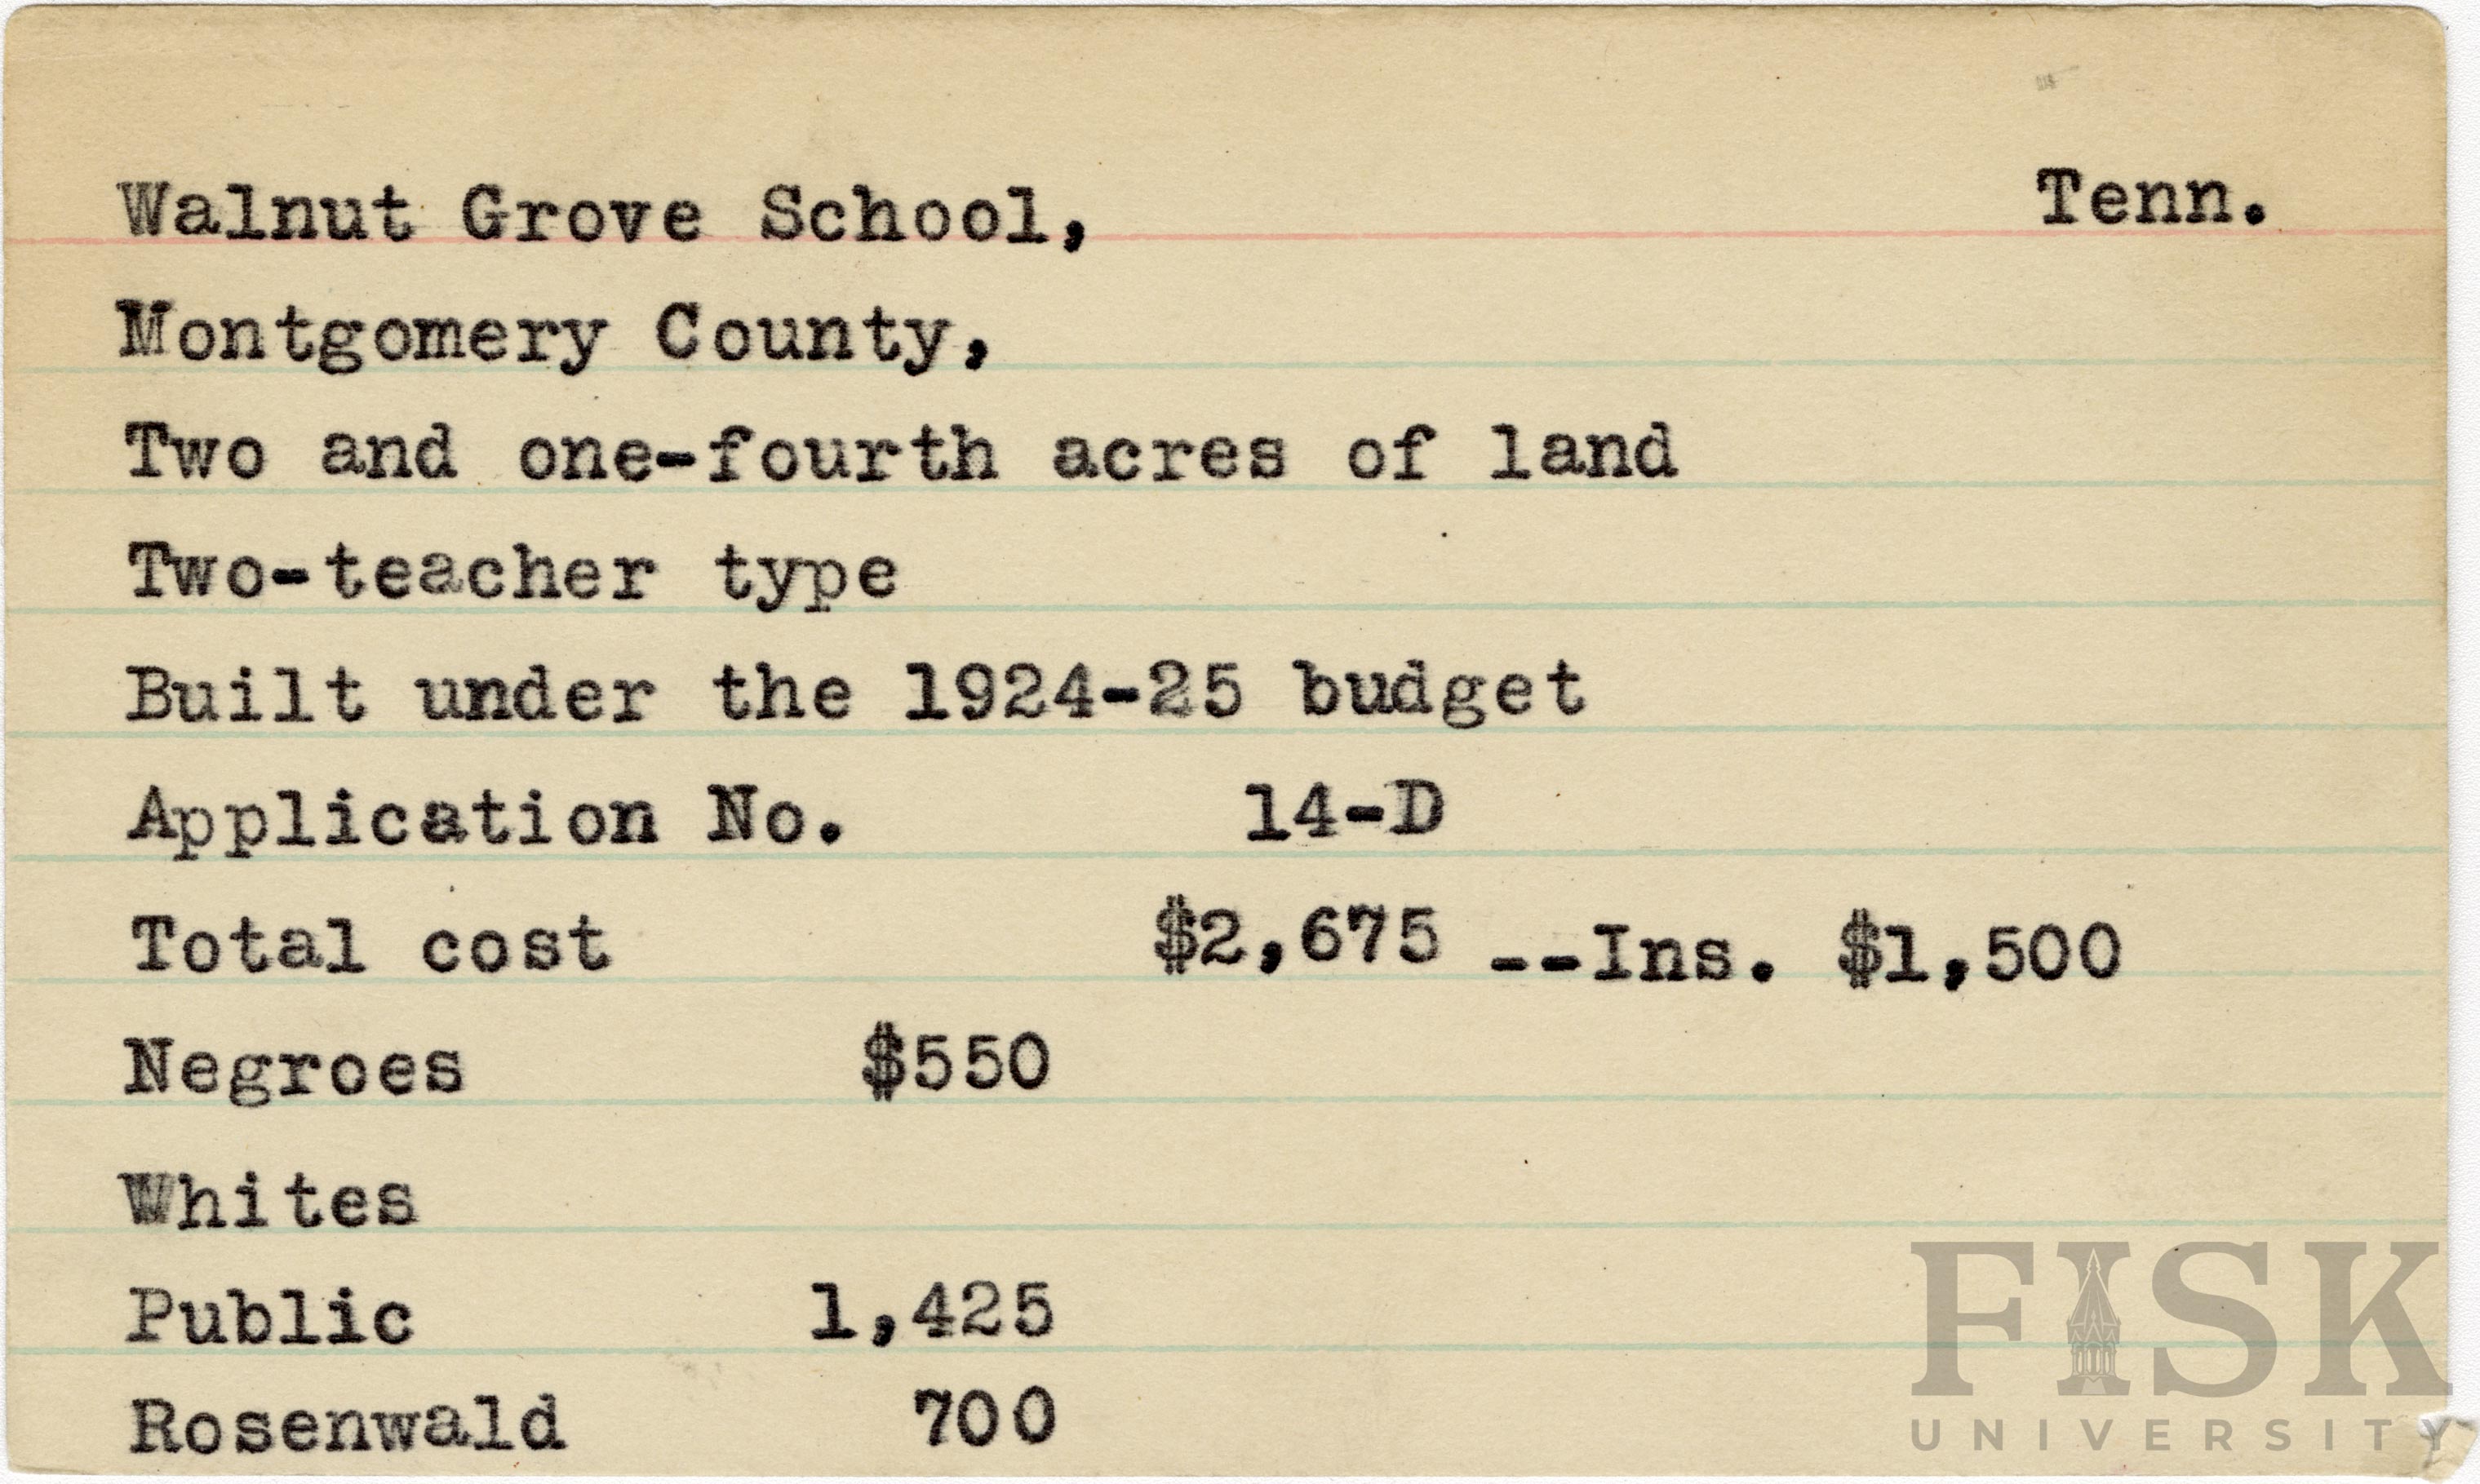 Walnut Grove School, Tenn.
Montgomery County,
Two and one-fourth acres of land
Two-teacher type
Built under the 1924-25 budget
Application No. 14-D
Total cost $2,675 --Ins. $1,500
Negroes $550
Whites
Public 1,425
Rosenwald 700
FISK
UNIVERSITY